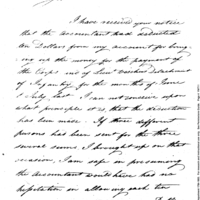 I have received your notice
that the Accountant had deducted
ten Dollars from my account for bring-
ing up the money for the payment of
the Corps and of Lieut Detachment
of Infantry for the months of June
& July last. I am not aware upon
what principles it is that the deduction
has been made. If three different
persons had been sent for the three
several sums I brought up on that
occasion, I am safe in presuming
the Accountant would have had no
hesitation in allowing each ten